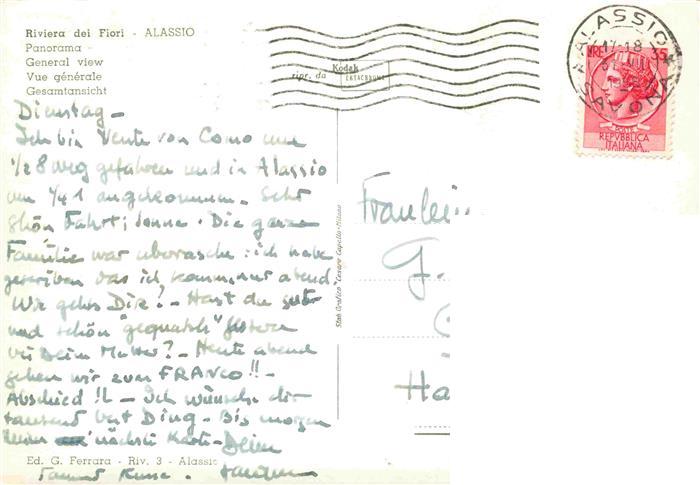 Riviera dei Fiori - ALASSIO
Panorama -
General view
Vue générale
Gesamtansicht
Dienstag -
Ich bin Heute von Como um
1/2 8 weg gefahren und in Alassio
um 1/4 1 angekommen. Sehr
schön Fahrt; Sonne. Die ganze
Familie war uberrasche: ich habe
geschriben das ich komm, nur abend.
Wir gehts Dir? - Hast du gut
und schön "gequatsch" gestern
bei Deim Mutter? - Heute abend
gehen wir zum FRANCO!! -
Abschied!! - Ich wünsche dir
tausend Ding - Bis morgen
nächsti Karte - Dein
Tausend Küsse.
Ed. G. Ferrara - Riv. 3 - Alassio
ripr. da Kodak EKTACHROME
Stab. Grafico "Cesare Capello - Milano
Fräulein
G.
Ha
ALASSIO
17-18
SAVONA
LIRE 35
POSTE
REPVBBLICA
ITALIANA